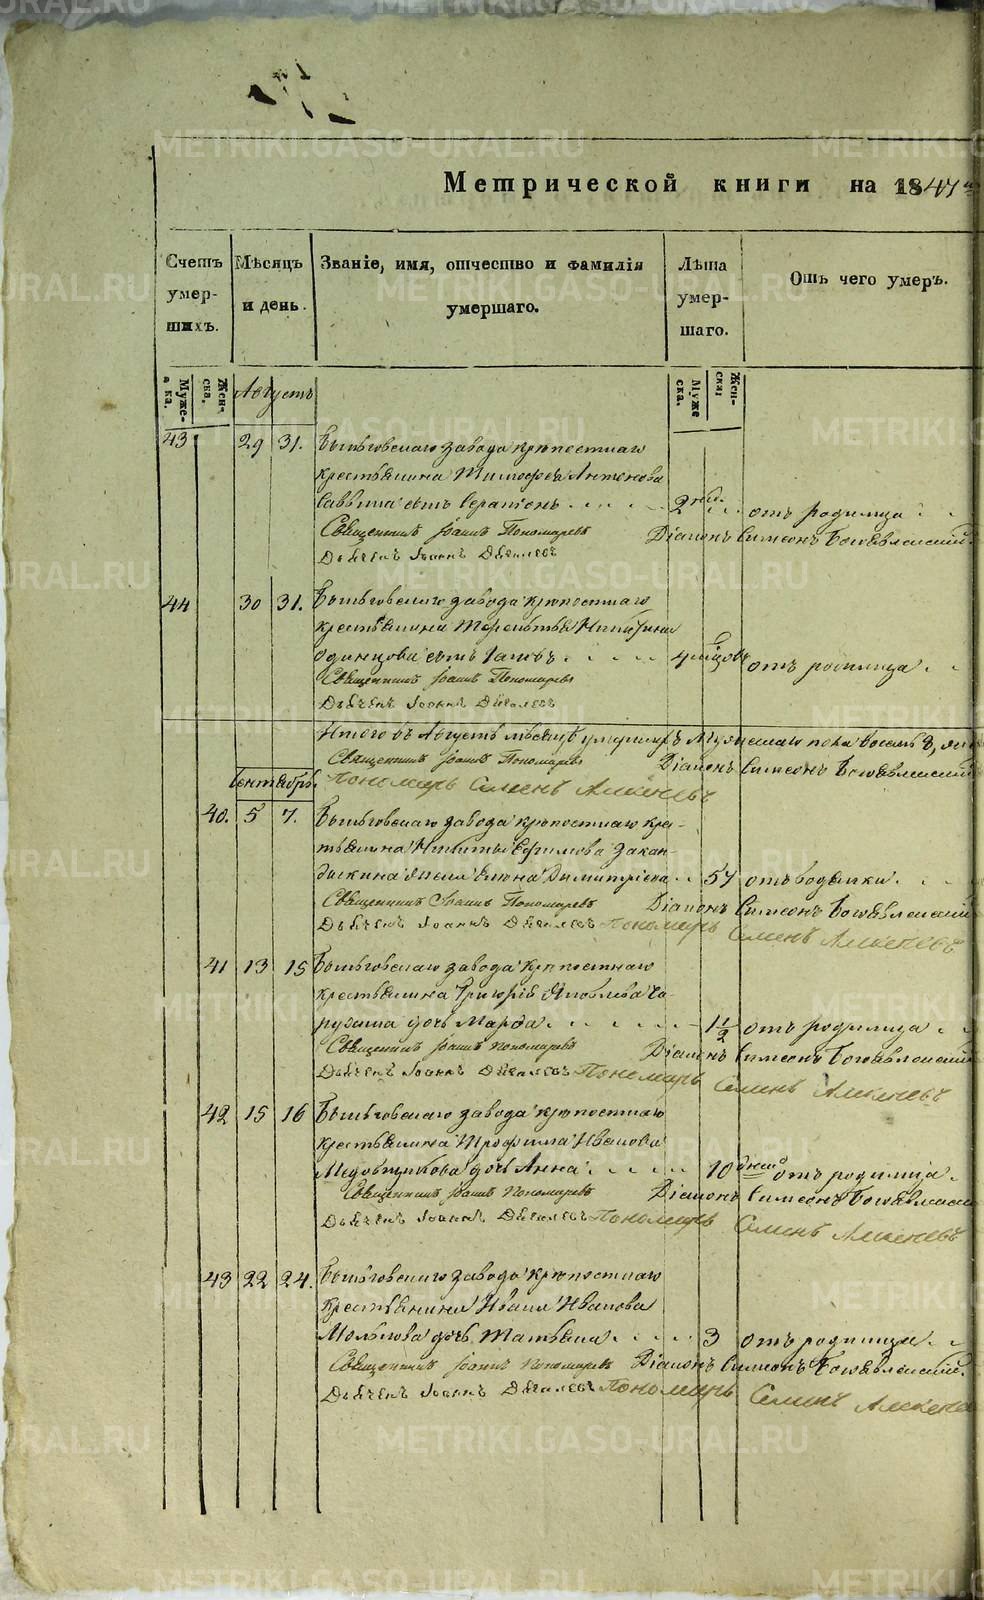 Метрической книги на 1847
Счетъ умер- шихъ.
Мѣсяцъ и день.
Званіе, имя, отчество и фамилія умершаго.
Лѣта умер- шаго.
Отъ чего умеръ.
Муже- ска.
Жен- ска.
Августъ
Муже ска.
Жен- ска.
43 29 31. завода крѣпостнаго
крестьянина Тимофея Антонова
сынъ 2 нед. отъ родимца
Священникъ Іоаннъ Пономаревъ Діаконъ Симеонъ Богоявленскій.
Дьячекъ Іоаннъ Дягилевъ
44 30 31. завода крѣпостнаго
крестьянина Терентья Никитина
Одинцова сынъ 4 мѣсяцовъ отъ родимца
Священникъ Іоаннъ Пономаревъ
Дьячекъ Іоаннъ Дягилевъ
Итого въ Августѣ мѣсяцѣ умершихъ Мужескаго пола восемь 8,
Священникъ Іоаннъ Пономаревъ Діаконъ Симеонъ Богоявленскій
Сентябрь.
Пономарь Семенъ
40. 5 7. завода крѣпостнаго кре-
стьянина Никиты Ефимова
Димитріева 57 отъ водянки.
Священникъ Іоаннъ Пономаревъ Діаконъ Симеонъ Богоявленскій
Дьячекъ Іоаннъ Дягилевъ Пономарь Семенъ
41 13 15 завода крѣпостнаго
крестьянина Григорія Яковлева
дочь Марфа 1 1/2 отъ родимца
Священникъ Іоаннъ Пономаревъ Діаконъ Симеонъ Богоявленскій
Дьячекъ Іоаннъ Дягилевъ Пономарь Семенъ
42 15 16 завода крѣпостнаго
крестьянина Трофима Иванова
дочь Анна 10 дней отъ родимца.
Священникъ Іоаннъ Пономаревъ Діаконъ Симеонъ
Дьячекъ Іоаннъ Дягилевъ Пономарь Семенъ
43 22 24. завода крѣпостнаго
крестьянина Ивана Иванова
дочь Татьяна 3 отъ родимца
Священникъ Іоаннъ Пономаревъ Діаконъ Симеонъ Богоявленскій.
Дьячекъ Іоаннъ Дягилевъ Пономарь Семенъ
METRIKI.GASO-URAL.RU